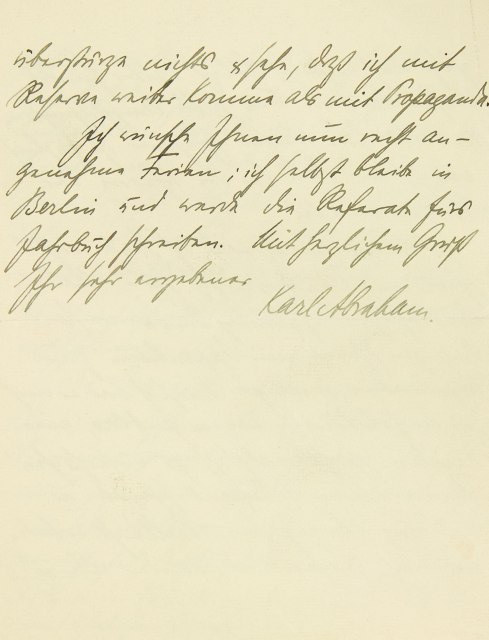 überstürze nichts u. sehe, daß ich mit
Reserve weiter komme als mit Propaganda.
Ich wünsche Ihnen nun recht an-
genehme Ferien; ich selbst bleibe in
Berlin und werde die Referate fürs
Jahrbuch schreiben. Mit herzlichem Gruß
Ihr sehr ergebener
Karl Abraham.